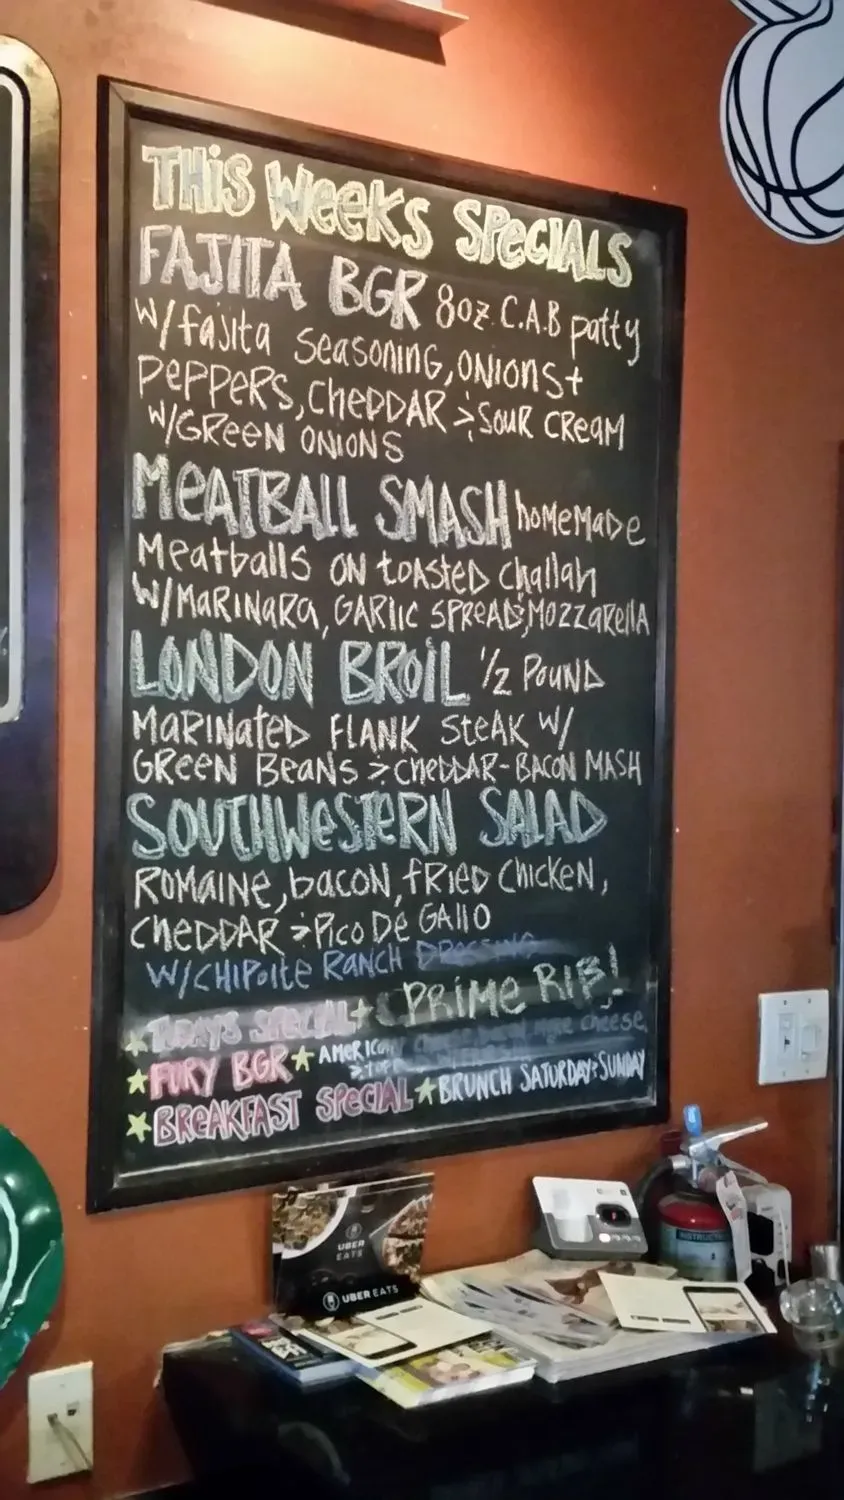 THiS WeeKS SPeCIALS
FAJITA BGR 8oz. C.A.B patty
w/fajita seasoning, ONIONS +
PePPeRS, CHeDDAR & SOUR CReAM
w/GReeN ONIONS
MeATBALL SMASH hoMeMaDe
Meatballs ON tOASteD challah
w/MARINARA, GARlIC SPReAD & MOZZARellA
LONDON BROiL 1/2 POUND
MARINAteD FLANK SteAK w/
GReeN BeANS & CHeDDAR-BACON MASH
SOUTHWeSTeRN SALAD
ROMAINE, bacon, fRIeD CHICKeN,
CHeDDAR & PICO De GAllO
w/CHIPOlte RANCH DRessING
TODAYS SPECIAL PRIMe RIB!
FURY BGR AMeRICAN cheese
BReAKFAST SPeCIAL BRUNCH SATURDAY & SUNDAY
UBER
EATS
UBER EATS
INSTRUCTIONS